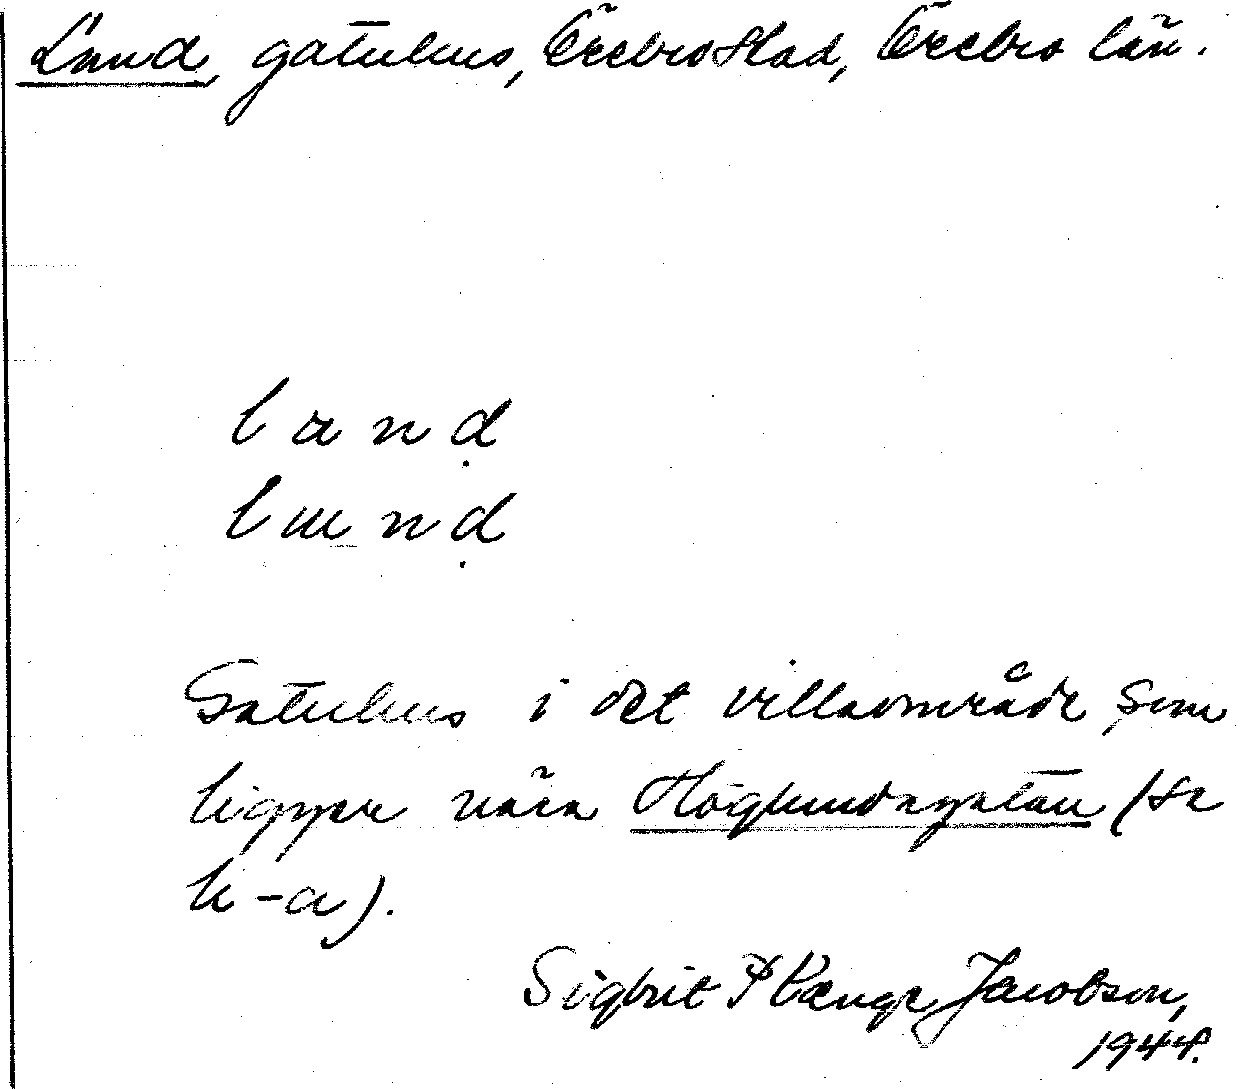 Lund, gatuhus, Örebro stad, Örebro län.
l u n ḍ
l ɯ n ḍ
Gatuhus i det villaområde som
ligger nära Höglundagatan (se
h-a).
Sigbrit Plænge Jacobson,
1944.